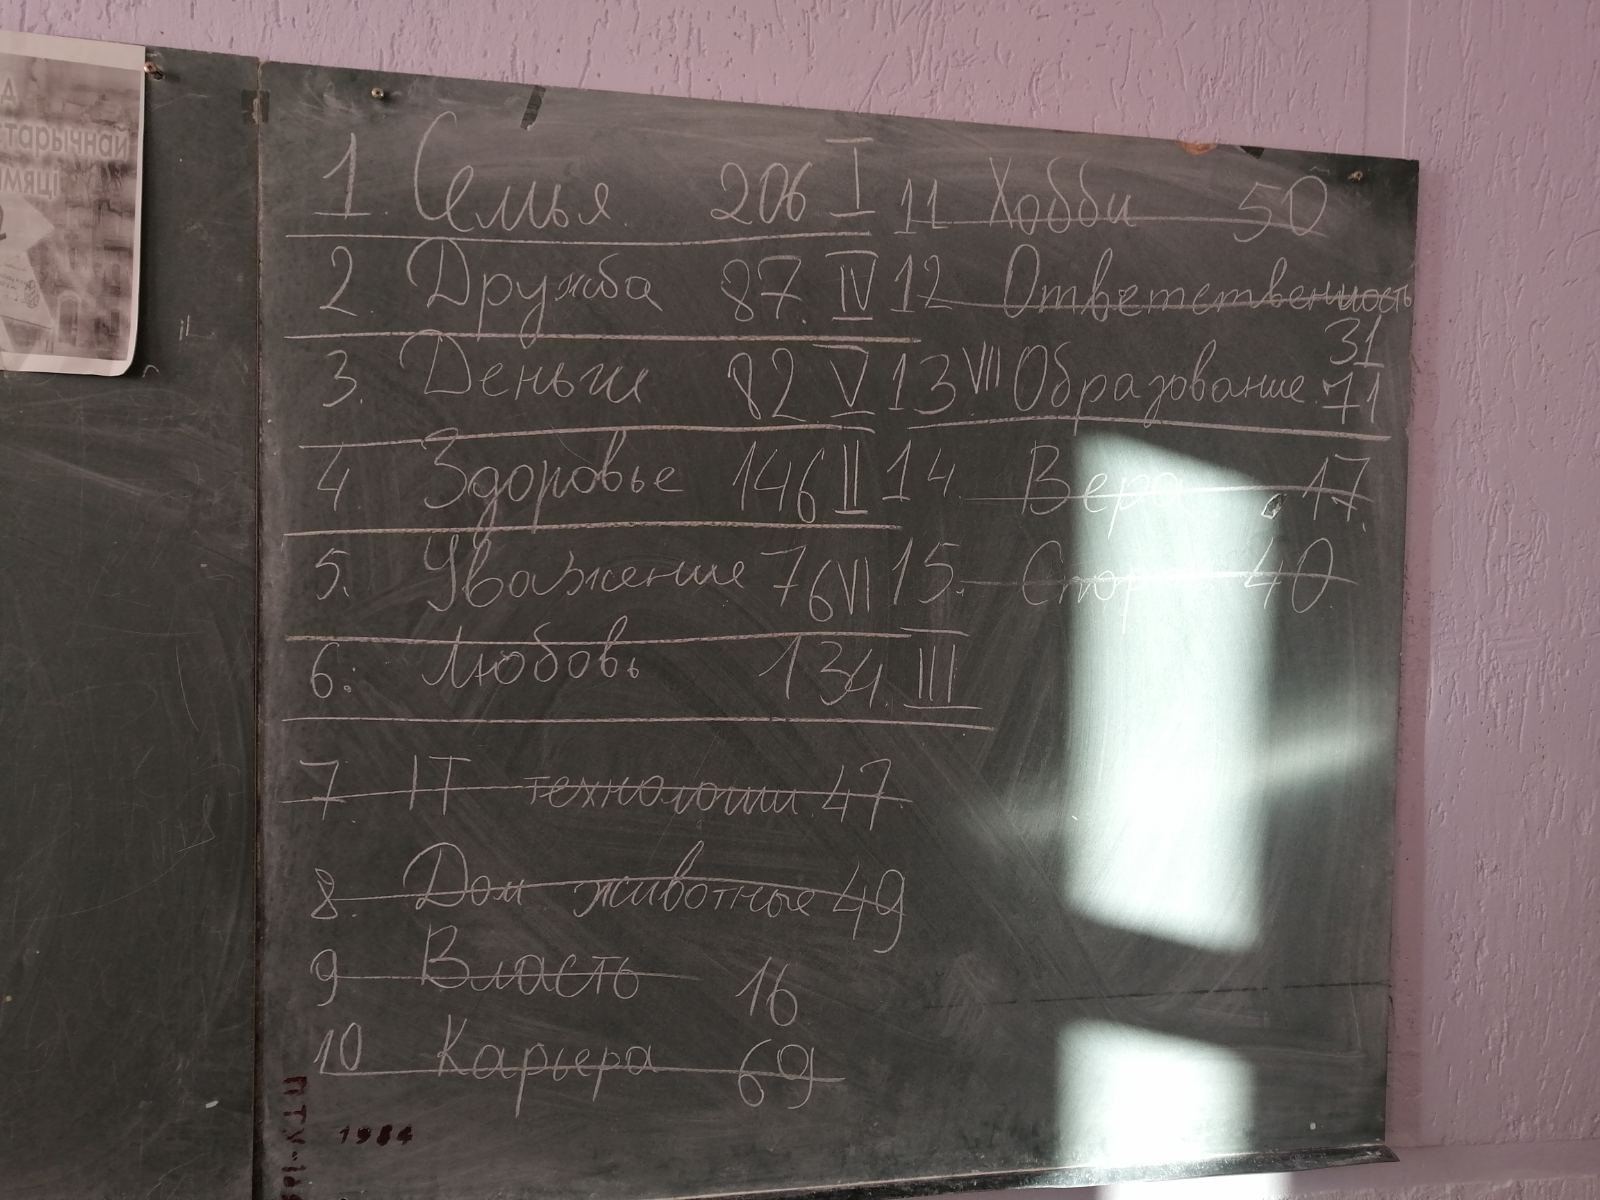 1. Семья 206 I
2 Дружба 87. IV
3. Деньги 82 V
4 Здоровье 146 II
5. Уважение 76 VI
6. Любовь 134. III
7 IT технологии 47
8. Дом животные 49
9 Власть 16
10 Карьера 69
11 Хобби 50
12 Ответственность
31
13 VII Образование 71
14. Вера 17.
15. Спорт 40
ПТУ-
1984